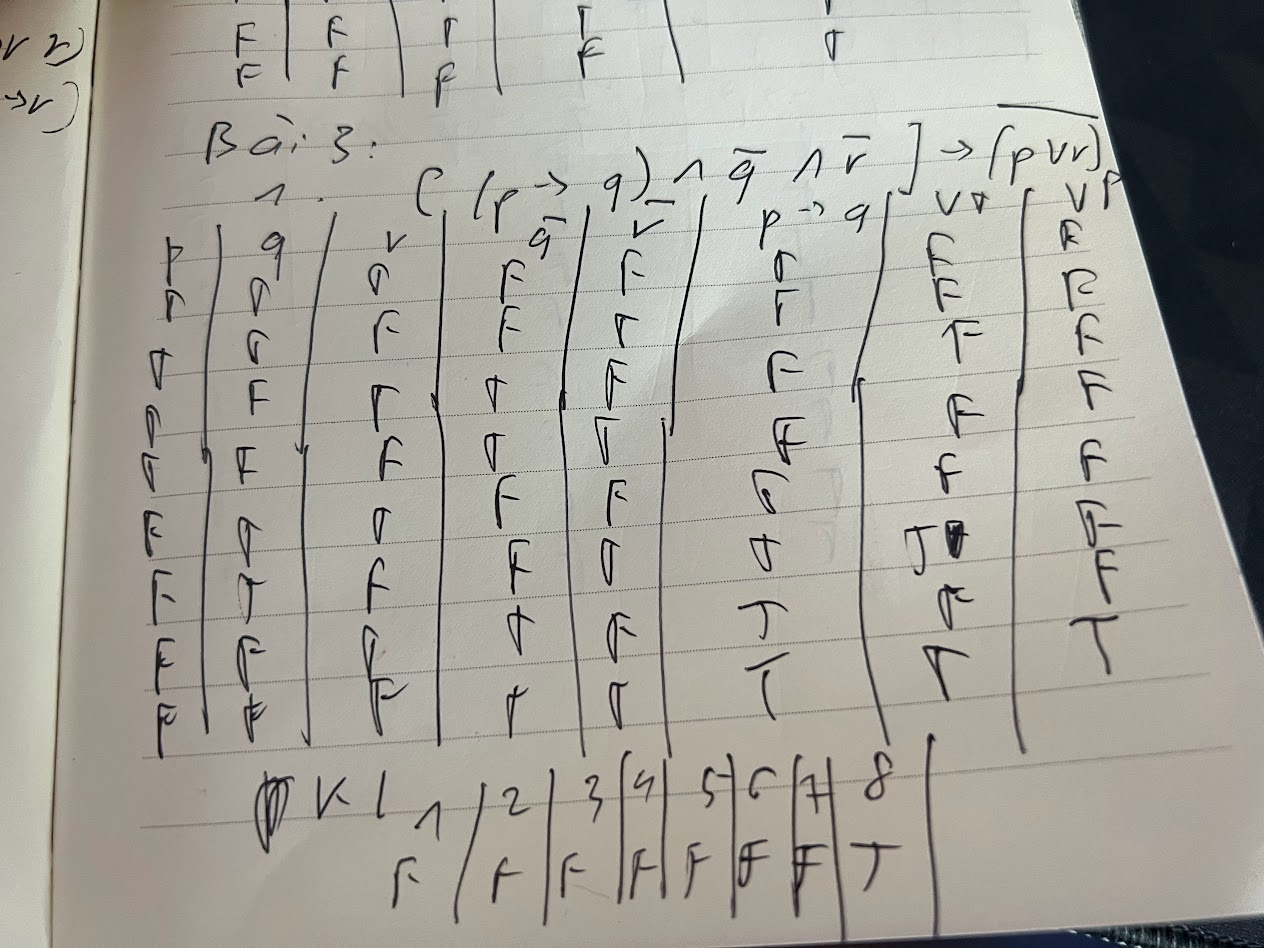 F | F | T | T |
F | F | F | F | T
Bài 3:
1. [ (p → q) ∧ q̅ ∧ r̅ ] → (p ∨ r)̅
p | q | r | q̅ | r̅ | p → q | VT | VP
T | T | T | F | F | T | F | F
T | T | F | F | T | T | F | F
T | F | T | T | F | F | F | F
T | F | F | T | T | F | F | F
F | T | T | F | F | T | F | F
F | T | F | F | T | T | T | F
F | F | T | T | F | T | F | F
F | F | F | T | T | T | T | T
KL 1 | 2 | 3 | 4 | 5 | 6 | 7 | 8 |
F | F | F | F | F | F | F | T |